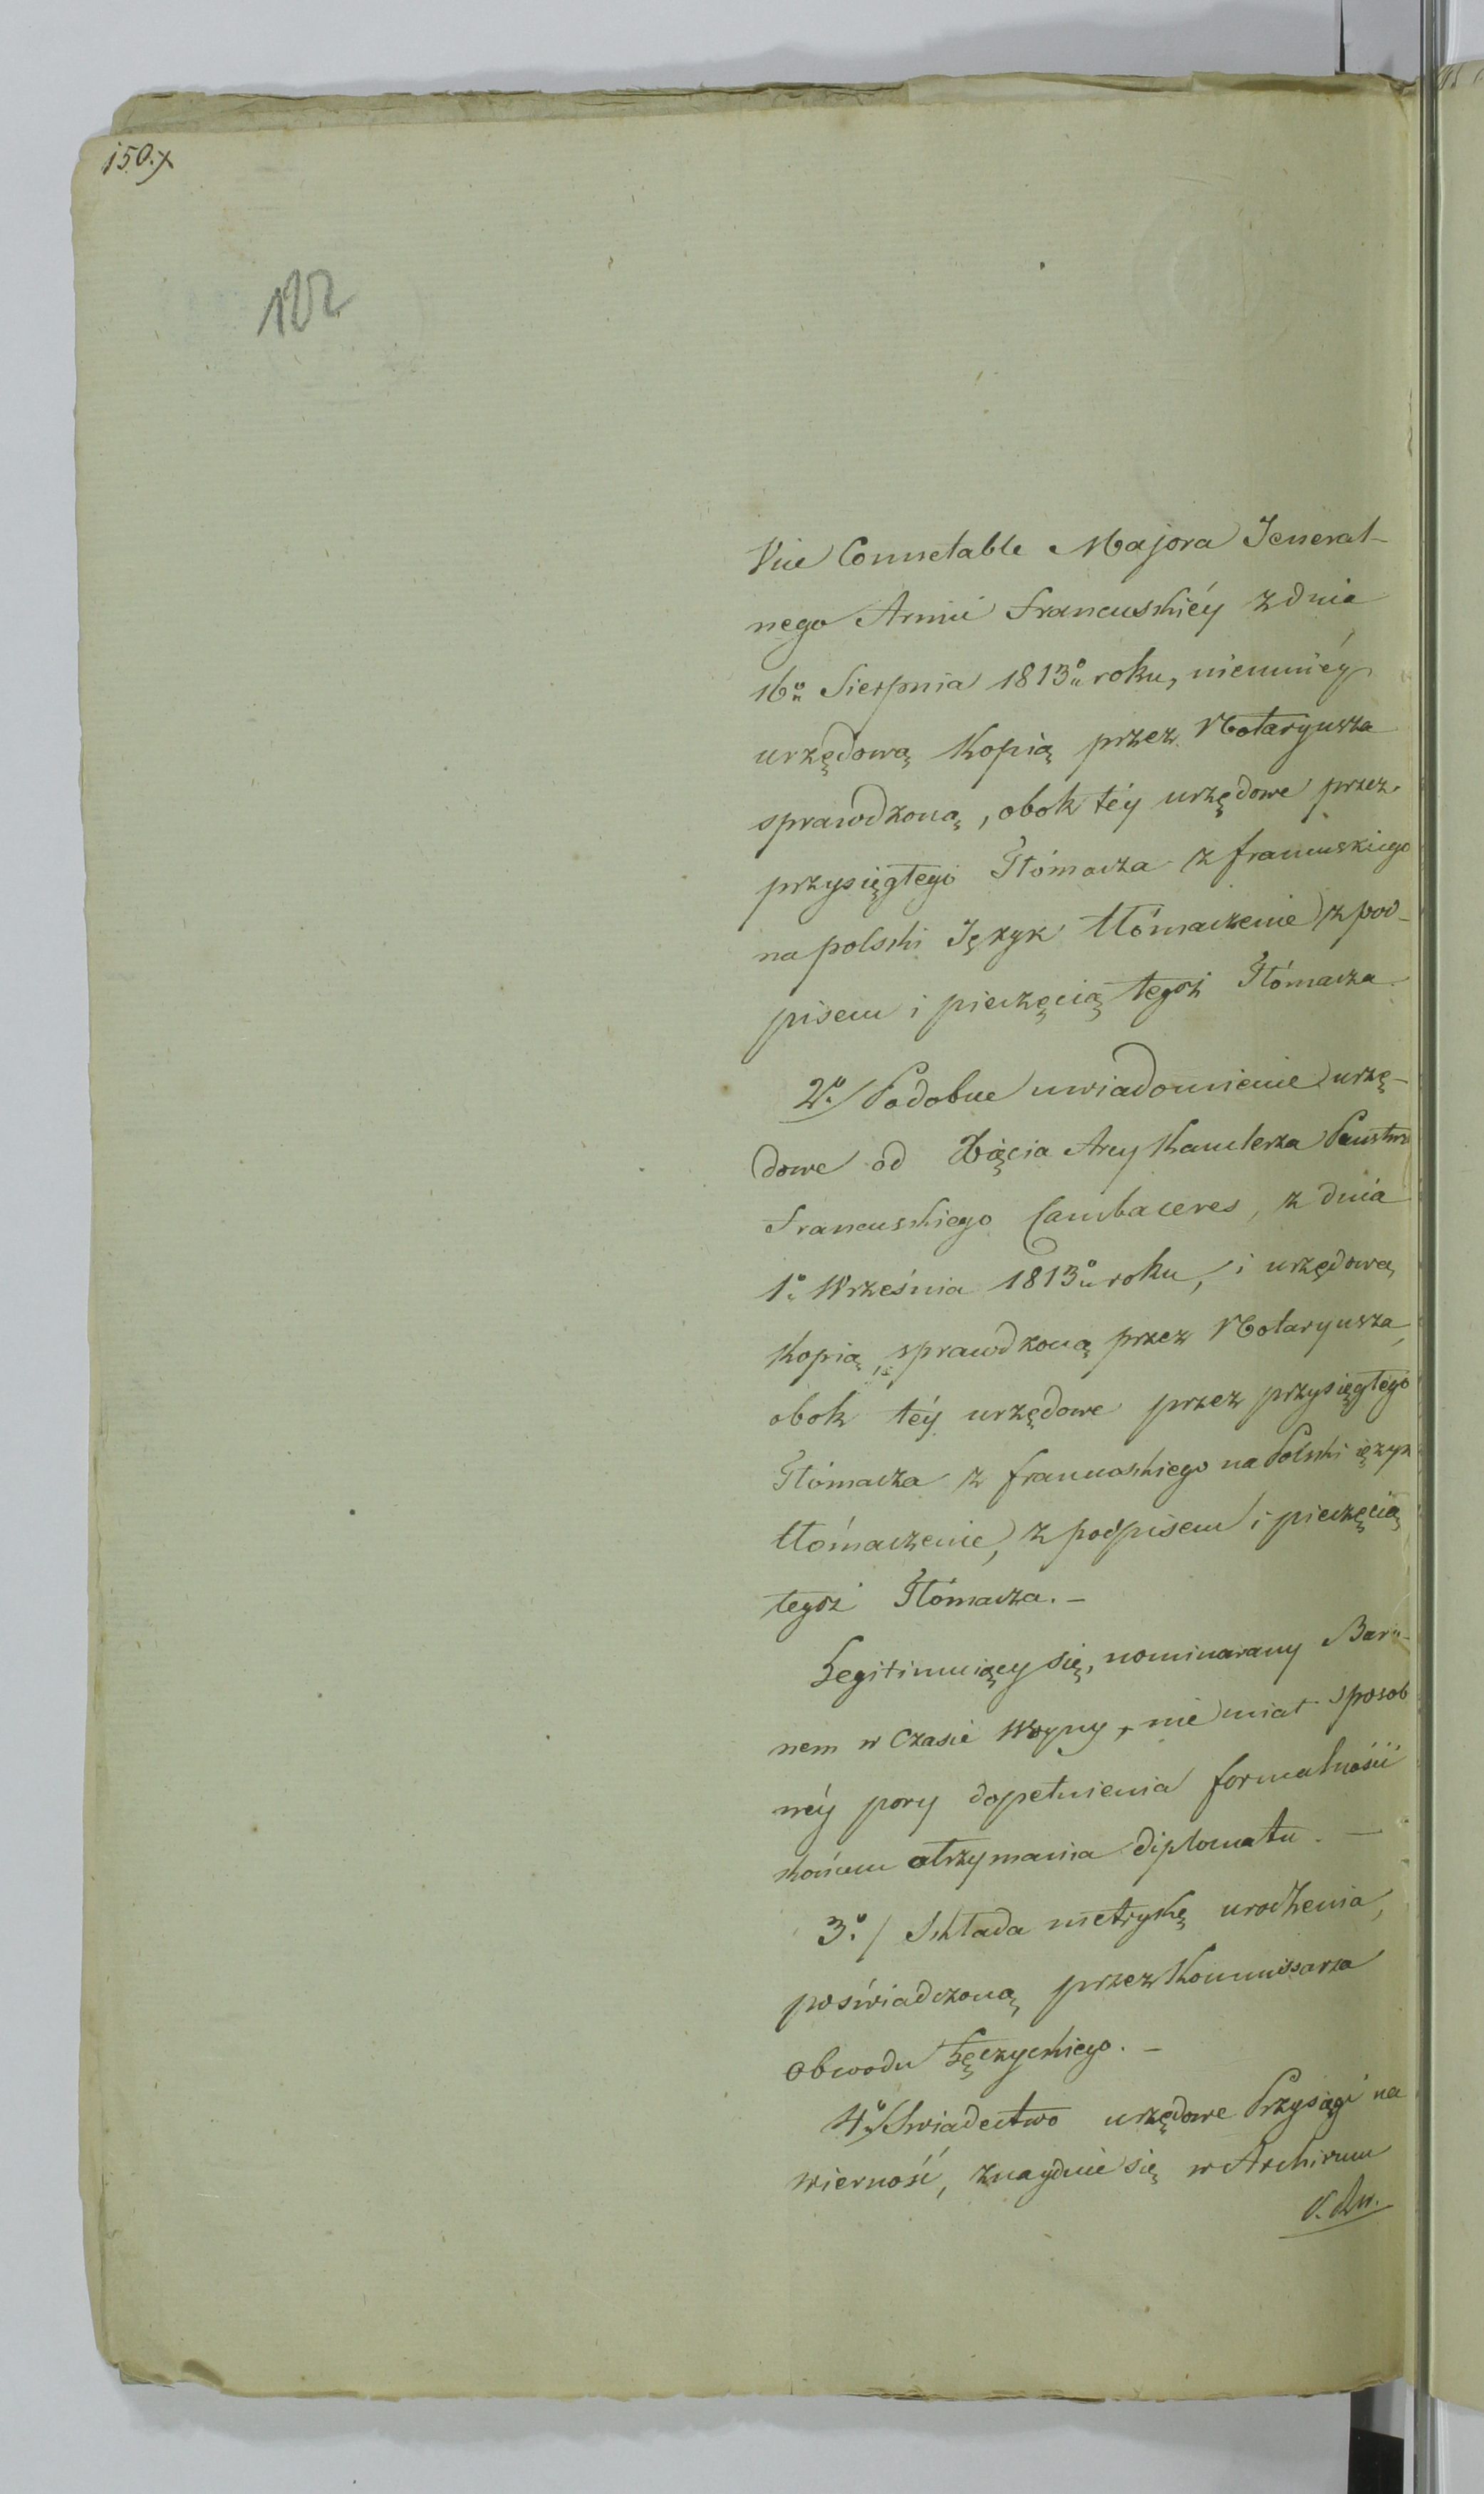 150.
122
Vice Connetable Majora Jeneral-
nego Armii Francuskiéy z dnia
16º Sierpnia 1813º roku, niemniéy
urzędową Kopią przez Notaryusza
sprawdzoną, obok téy urzędowe przez
przysięgłego Tłómacza z francuskiego
na polski Język tłómaczenie z pod-
pisem i pieczęcią tegoż Tłómacza.
2º/ Podobne uwiadomienie urzę-
dowe od Xięcia Arcy Kanclerza Państwa
Francuskiego Cambaceres, z dnia
1º Września 1813º roku, i urzędową
Kopią, sprawdzoną przez Notaryusza,
obok téy urzędowe przez przysięgłego
Tłómacza z francuskiego na Polski ięzyk
tłómaczenie, z podpisem i pieczęcią
tegoż Tłómacza. -
Legitimuiący się, nominowany Baro-
nem w Czasie Woyny, nie miał sposob
néy pory dopełnienia formalności
końcem otrzymania diplomatu. -
3º/ Składa metrykę urodzenia,
poświadczoną przez Kommissarza
Obwodu Łęczyckiego. -
4º/ Swiadectwo urzędowe Przysięgi na
wierność, znayduie się w Archivum